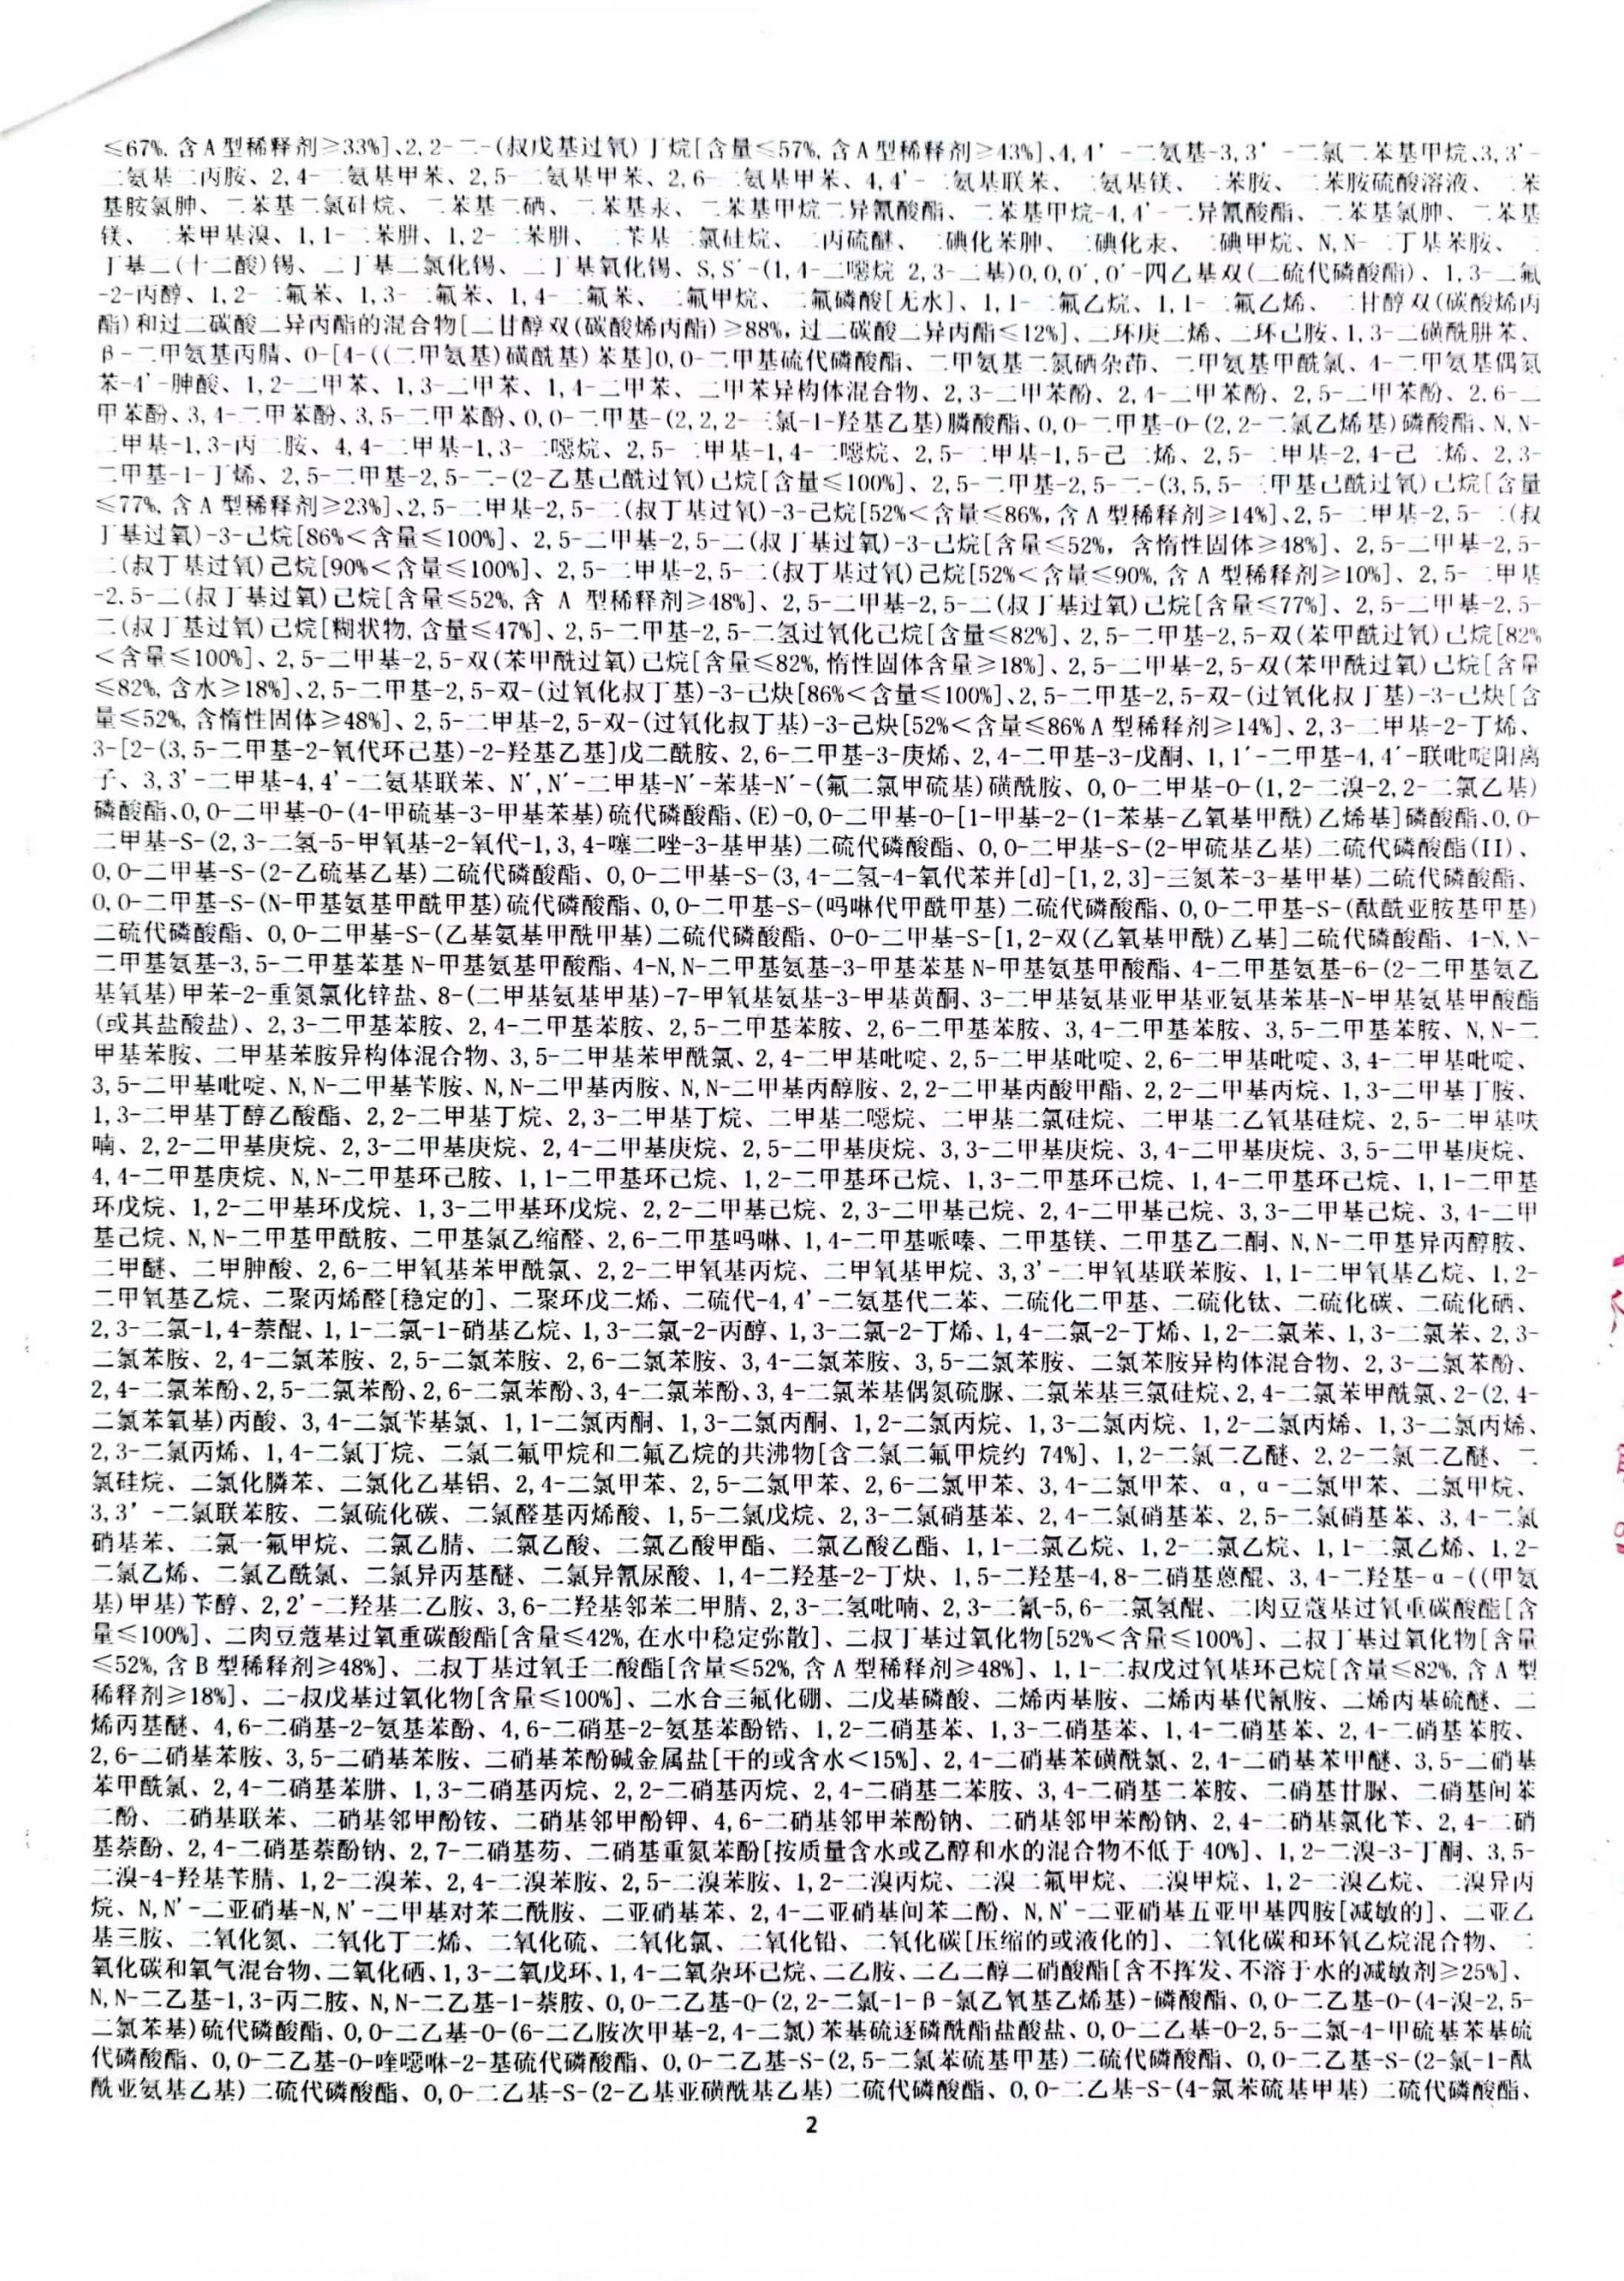 ≤67%,含A型稀释剂≥33%]、2,2-二-(叔戊基过氧)丁烷[含量≤57%,含A型稀释剂≥43%]、4,4'-二氨基-3,3'-二氯二苯基甲烷、3,3'-
二氨基二丙胺、2,4-二氨基甲苯、2,5-二氨基甲苯、2,6-二氨基甲苯、4,4'-二氨基联苯、二氨基镁、二苯胺、二苯胺硫酸溶液、二苯
基胺氯胂、二苯基二氯硅烷、二苯基二硒、二苯基汞、二苯基甲烷二异氰酸酯、二苯基甲烷-4,4'-二异氰酸酯、二苯基氯胂、二苯基
镁、二苯甲基溴、1,1-二苯肼、1,2-二苯肼、二苄基二氯硅烷、二丙硫醚、二碘化苯胂、二碘化汞、二碘甲烷、N,N-二丁基苯胺、二
丁基二(十二酸)锡、二丁基二氯化锡、二丁基氧化锡、S,S'-(1,4-二噁烷 2,3-二基)0,0,0',0'-四乙基双(二硫代磷酸酯)、1,3-二氟
-2-丙醇、1,2-二氟苯、1,3-二氟苯、1,4-二氟苯、二氟甲烷、二氟磷酸[无水]、1,1-二氟乙烷、1,1-二氟乙烯、二甘醇双(碳酸烯丙
酯)和过二碳酸二异丙酯的混合物[二甘醇双(碳酸烯丙酯)≥88%,过二碳酸二异丙酯≤12%]、二环庚二烯、二环己胺、1,3-二磺酰肼苯、
β-二甲氨基丙腈、0-[4-((二甲氨基)磺酰基)苯基]0,0-二甲基硫代磷酸酯、二甲氨基二氮硒杂茚、二甲氨基甲酰氯、4-二甲氨基偶氮
苯-4'-胂酸、1,2-二甲苯、1,3-二甲苯、1,4-二甲苯、二甲苯异构体混合物、2,3-二甲苯酚、2,4-二甲苯酚、2,5-二甲苯酚、2,6-二
甲苯酚、3,4-二甲苯酚、3,5-二甲苯酚、0,0-二甲基-(2,2,2-三氯-1-羟基乙基)膦酸酯、0,0-二甲基-0-(2,2-二氯乙烯基)磷酸酯、N,N-
二甲基-1,3-丙二胺、4,4-二甲基-1,3-二噁烷、2,5-二甲基-1,4-二噁烷、2,5-二甲基-1,5-己二烯、2,5-二甲基-2,4-己二烯、2,3-
二甲基-1-丁烯、2,5-二甲基-2,5-二-(2-乙基己酰过氧)己烷[含量≤100%]、2,5-二甲基-2,5-二-(3,5,5-三甲基己酰过氧)己烷[含量
≤77%,含A型稀释剂≥23%]、2,5-二甲基-2,5-二(叔丁基过氧)-3-己烷[52%<含量≤86%,含A型稀释剂≥14%]、2,5-二甲基-2,5-二(叔
丁基过氧)-3-己烷[86%<含量≤100%]、2,5-二甲基-2,5-二(叔丁基过氧)-3-己烷[含量≤52%,含惰性固体≥48%]、2,5-二甲基-2,5-
二(叔丁基过氧)己烷[90%<含量≤100%]、2,5-二甲基-2,5-二(叔丁基过氧)己烷[52%<含量≤90%,含A型稀释剂≥10%]、2,5-二甲基
-2,5-二(叔丁基过氧)己烷[含量≤52%,含 A 型稀释剂≥48%]、2,5-二甲基-2,5-二(叔丁基过氧)己烷[含量≤77%]、2,5-二甲基-2,5-
二(叔丁基过氧)己烷[糊状物,含量≤47%]、2,5-二甲基-2,5-二氢过氧化己烷[含量≤82%]、2,5-二甲基-2,5-双(苯甲酰过氧)己烷[82%
<含量≤100%]、2,5-二甲基-2,5-双(苯甲酰过氧)己烷[含量≤82%,惰性固体含量≥18%]、2,5-二甲基-2,5-双(苯甲酰过氧)己烷[含量
≤82%,含水≥18%]、2,5-二甲基-2,5-双-(过氧化叔丁基)-3-己炔[86%<含量≤100%]、2,5-二甲基-2,5-双-(过氧化叔丁基)-3-己炔[含
量≤52%,含惰性固体≥48%]、2,5-二甲基-2,5-双-(过氧化叔丁基)-3-己炔[52%<含量≤86%A型稀释剂≥14%]、2,3-二甲基-2-丁烯、
3-[2-(3,5-二甲基-2-氧代环己基)-2-羟基乙基]戊二酰胺、2,6-二甲基-3-庚烯、2,4-二甲基-3-戊酮、1,1'-二甲基-4,4'-联吡啶阳离
子、3,3'-二甲基-4,4'-二氨基联苯、N',N'-二甲基-N'-苯基-N'-(氟二氯甲硫基)磺酰胺、0,0-二甲基-0-(1,2-二溴-2,2-二氯乙基)
磷酸酯、0,0-二甲基-0-(4-甲硫基-3-甲基苯基)硫代磷酸酯、(E)-0,0-二甲基-0-[1-甲基-2-(1-苯基-乙氧基甲酰)乙烯基]磷酸酯、0,0-
二甲基-S-(2,3-二氢-5-甲氧基-2-氧代-1,3,4-噻二唑-3-基甲基)二硫代磷酸酯、0,0-二甲基-S-(2-甲硫基乙基)二硫代磷酸酯(II)、
0,0-二甲基-S-(2-乙硫基乙基)二硫代磷酸酯、0,0-二甲基-S-(3,4-二氢-4-氧代苯并[d]-[1,2,3]-三氮苯-3-基甲基)二硫代磷酸酯、
0,0-二甲基-S-(N-甲基氨基甲酰甲基)硫代磷酸酯、0,0-二甲基-S-(吗啉代甲酰甲基)二硫代磷酸酯、0,0-二甲基-S-(酞酰亚胺基甲基)
二硫代磷酸酯、0,0-二甲基-S-(乙基氨基甲酰甲基)二硫代磷酸酯、0-0-二甲基-S-[1,2-双(乙氧基甲酰)乙基]二硫代磷酸酯、4-N,N-
二甲基氨基-3,5-二甲基苯基N-甲基氨基甲酸酯、4-N,N-二甲基氨基-3-甲基苯基N-甲基氨基甲酸酯、4-二甲基氨基-6-(2-二甲基氨乙
基氧基)甲苯-2-重氮氯化锌盐、8-(二甲基氨基甲基)-7-甲氧基氨基-3-甲基黄酮、3-二甲基氨基亚甲基亚氨基苯基-N-甲基氨基甲酸酯
(或其盐酸盐)、2,3-二甲基苯胺、2,4-二甲基苯胺、2,5-二甲基苯胺、2,6-二甲基苯胺、3,4-二甲基苯胺、3,5-二甲基苯胺、N,N-二
甲基苯胺、二甲基苯胺异构体混合物、3,5-二甲基苯甲酰氯、2,4-二甲基吡啶、2,5-二甲基吡啶、2,6-二甲基吡啶、3,4-二甲基吡啶、
3,5-二甲基吡啶、N,N-二甲基苄胺、N,N-二甲基丙胺、N,N-二甲基丙醇胺、2,2-二甲基丙酸甲酯、2,2-二甲基丙烷、1,3-二甲基丁胺、
1,3-二甲基丁醇乙酸酯、2,2-二甲基丁烷、2,3-二甲基丁烷、二甲基二噁烷、二甲基二氯硅烷、二甲基二乙氧基硅烷、2,5-二甲基呋
喃、2,2-二甲基庚烷、2,3-二甲基庚烷、2,4-二甲基庚烷、2,5-二甲基庚烷、3,3-二甲基庚烷、3,4-二甲基庚烷、3,5-二甲基庚烷、
4,4-二甲基庚烷、N,N-二甲基环己胺、1,1-二甲基环己烷、1,2-二甲基环己烷、1,3-二甲基环己烷、1,4-二甲基环己烷、1,1-二甲基
环戊烷、1,2-二甲基环戊烷、1,3-二甲基环戊烷、2,2-二甲基己烷、2,3-二甲基己烷、2,4-二甲基己烷、3,3-二甲基己烷、3,4-二甲
基己烷、N,N-二甲基甲酰胺、二甲基氯乙缩醛、2,6-二甲基吗啉、1,4-二甲基哌嗪、二甲基镁、二甲基乙二酮、N,N-二甲基异丙醇胺、
二甲醚、二甲胂酸、2,6-二甲氧基苯甲酰氯、2,2-二甲氧基丙烷、二甲氧基甲烷、3,3'-二甲氧基联苯胺、1,1-二甲氧基乙烷、1,2-
二甲氧基乙烷、二聚丙烯醛[稳定的]、二聚环戊二烯、二硫代-4,4'-二氨基代二苯、二硫化二甲基、二硫化钛、二硫化碳、二硫化硒、
2,3-二氯-1,4-萘醌、1,1-二氯-1-硝基乙烷、1,3-二氯-2-丙醇、1,3-二氯-2-丁烯、1,4-二氯-2-丁烯、1,2-二氯苯、1,3-二氯苯、2,3-
二氯苯胺、2,4-二氯苯胺、2,5-二氯苯胺、2,6-二氯苯胺、3,4-二氯苯胺、3,5-二氯苯胺、二氯苯胺异构体混合物、2,3-二氯苯酚、
2,4-二氯苯酚、2,5-二氯苯酚、2,6-二氯苯酚、3,4-二氯苯酚、3,4-二氯苯基偶氮硫脲、二氯苯基三氯硅烷、2,4-二氯苯甲酰氯、2-(2,4-
二氯苯氧基)丙酸、3,4-二氯苄基氯、1,1-二氯丙酮、1,3-二氯丙酮、1,2-二氯丙烷、1,3-二氯丙烷、1,2-二氯丙烯、1,3-二氯丙烯、
2,3-二氯丙烯、1,4-二氯丁烷、二氯二氟甲烷和二氟乙烷的共沸物[含二氯二氟甲烷约 74%]、1,2-二氯二乙醚、2,2-二氯二乙醚、二
氯硅烷、二氯化膦苯、二氯化乙基铝、2,4-二氯甲苯、2,5-二氯甲苯、2,6-二氯甲苯、3,4-二氯甲苯、α,α-二氯甲苯、二氯甲烷、
3,3'-二氯联苯胺、二氯硫化碳、二氯醛基丙烯酸、1,5-二氯戊烷、2,3-二氯硝基苯、2,4-二氯硝基苯、2,5-二氯硝基苯、3,4-二氯
硝基苯、二氯一氟甲烷、二氯乙腈、二氯乙酸、二氯乙酸甲酯、二氯乙酸乙酯、1,1-二氯乙烷、1,2-二氯乙烷、1,1-二氯乙烯、1,2-
二氯乙烯、二氯乙酰氯、二氯异丙基醚、二氯异氰尿酸、1,4-二羟基-2-丁炔、1,5-二羟基-4,8-二硝基蒽醌、3,4-二羟基-α-((甲氨
基)甲基)苄醇、2,2'-二羟基二乙胺、3,6-二羟基邻苯二甲腈、2,3-二氢吡喃、2,3-二氰-5,6-二氯氢醌、二肉豆蔻基过氧重碳酸酯[含
量≤100%]、二肉豆蔻基过氧重碳酸酯[含量≤42%,在水中稳定弥散]、二叔丁基过氧化物[52%<含量≤100%]、二叔丁基过氧化物[含量
≤52%,含B型稀释剂≥48%]、二叔丁基过氧壬二酸酯[含量≤52%,含A型稀释剂≥48%]、1,1-二叔戊过氧基环己烷[含量≤82%,含A型
稀释剂≥18%]、二-叔戊基过氧化物[含量≤100%]、二水合三氟化硼、二戊基磷酸、二烯丙基胺、二烯丙基代氰胺、二烯丙基硫醚、二
烯丙基醚、4,6-二硝基-2-氨基苯酚、4,6-二硝基-2-氨基苯酚锆、1,2-二硝基苯、1,3-二硝基苯、1,4-二硝基苯、2,4-二硝基苯胺、
2,6-二硝基苯胺、3,5-二硝基苯胺、二硝基苯酚碱金属盐[干的或含水<15%]、2,4-二硝基苯磺酰氯、2,4-二硝基苯甲醚、3,5-二硝基
苯甲酰氯、2,4-二硝基苯肼、1,3-二硝基丙烷、2,2-二硝基丙烷、2,4-二硝基二苯胺、3,4-二硝基二苯胺、二硝基甘脲、二硝基间苯
二酚、二硝基联苯、二硝基邻甲酚铵、二硝基邻甲酚钾、4,6-二硝基邻甲苯酚钠、二硝基邻甲苯酚钠、2,4-二硝基氯化苄、2,4-二硝
基萘酚、2,4-二硝基萘酚钠、2,7-二硝基芴、二硝基重氮苯酚[按质量含水或乙醇和水的混合物不低于40%]、1,2-二溴-3-丁酮、3,5-
二溴-4-羟基苄腈、1,2-二溴苯、2,4-二溴苯胺、2,5-二溴苯胺、1,2-二溴丙烷、二溴二氟甲烷、二溴甲烷、1,2-二溴乙烷、二溴异丙
烷、N,N'-二亚硝基-N,N'-二甲基对苯二酰胺、二亚硝基苯、2,4-二亚硝基间苯二酚、N,N'-二亚硝基五亚甲基四胺[减敏的]、二亚乙
基三胺、二氧化氮、二氧化丁二烯、二氧化硫、二氧化氯、二氧化铅、二氧化碳[压缩的或液化的]、二氧化碳和环氧乙烷混合物、二
氧化碳和氧气混合物、二氧化硒、1,3-二氧戊环、1,4-二氧杂环己烷、二乙胺、二乙二醇二硝酸酯[含不挥发、不溶于水的减敏剂≥25%]、
N,N-二乙基-1,3-丙二胺、N,N-二乙基-1-萘胺、0,0-二乙基-0-(2,2-二氯-1-β-氯乙氧基乙烯基)-磷酸酯、0,0-二乙基-0-(4-溴-2,5-
二氯苯基)硫代磷酸酯、0,0-二乙基-0-(6-二乙胺次甲基-2,4-二氯)苯基硫逐磷酰酯盐酸盐、0,0-二乙基-0-2,5-二氯-4-甲硫基苯基硫
代磷酸酯、0,0-二乙基-0-喹噁啉-2-基硫代磷酸酯、0,0-二乙基-S-(2,5-二氯苯硫基甲基)二硫代磷酸酯、0,0-二乙基-S-(2-氯-1-酞
酰亚氨基乙基)二硫代磷酸酯、0,0-二乙基-S-(2-乙基亚磺酰基乙基)二硫代磷酸酯、0,0-二乙基-S-(4-氯苯硫基甲基)二硫代磷酸酯、
2